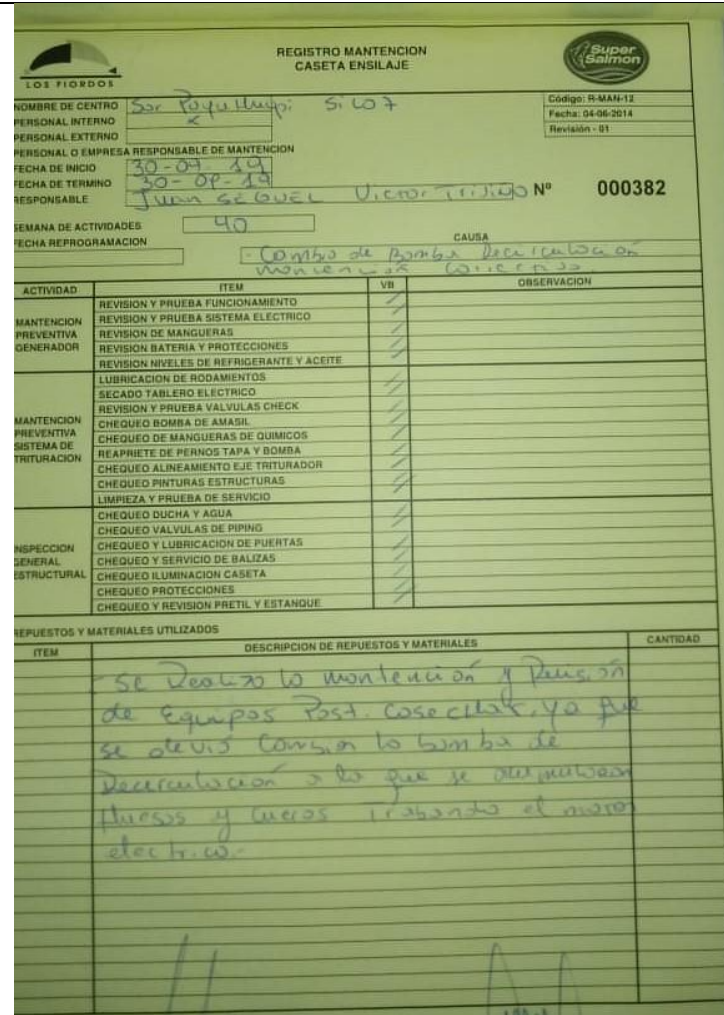 LOS FIORDOS
REGISTRO MANTENCION
CASETA ENSILAJE
Super
Salmon
NOMBRE DE CENTRO Sor Poyullhuapi Silo 7
PERSONAL INTERNO x
PERSONAL EXTERNO
PERSONAL O EMPRESA RESPONSABLE DE MANTENCION
Código: R-MAN-12
Fecha: 04-06-2014
Revisión - 01
FECHA DE INICIO 30-09-19
FECHA DE TERMINO 30-09-19
RESPONSABLE Juan SEGUEL Victor
Nº 000382
SEMANA DE ACTIVIDADES 40
FECHA REPROGRAMACION
CAUSA
- Cambio de Bomba Recirculación
mantencion
ACTIVIDAD ITEM VB OBSERVACION
MANTENCION
PREVENTIVA
GENERADOR
REVISION Y PRUEBA FUNCIONAMIENTO
REVISION Y PRUEBA SISTEMA ELECTRICO
REVISION DE MANGUERAS
REVISION BATERIA Y PROTECCIONES
REVISION NIVELES DE REFRIGERANTE Y ACEITE
MANTENCION
PREVENTIVA
SISTEMA DE
TRITURACION
LUBRICACION DE RODAMIENTOS
SECADO TABLERO ELECTRICO
REVISION Y PRUEBA VALVULAS CHECK
CHEQUEO BOMBA DE AMASIL
CHEQUEO DE MANGUERAS DE QUIMICOS
REAPRIETE DE PERNOS TAPA Y BOMBA
CHEQUEO ALINEAMIENTO EJE TRITURADOR
CHEQUEO PINTURAS ESTRUCTURAS
LIMPIEZA Y PRUEBA DE SERVICIO
NSPECCION
GENERAL
ESTRUCTURAL
CHEQUEO DUCHA Y AGUA
CHEQUEO VALVULAS DE PIPING
CHEQUEO Y LUBRICACION DE PUERTAS
CHEQUEO Y SERVICIO DE BALIZAS
CHEQUEO ILUMINACION CASETA
CHEQUEO PROTECCIONES
CHEQUEO Y REVISION PRETIL Y ESTANQUE
REPUESTOS Y MATERIALES UTILIZADOS
ITEM DESCRIPCION DE REPUESTOS Y MATERIALES CANTIDAD
- Se Realizo la mantención y Revisión
de Equipos Post. Cosechar, ya que
se devió Cambiar la bomba de
Recirculación a la que se acumularon
Huesos y Cueros Trabando el motor
electrico.-